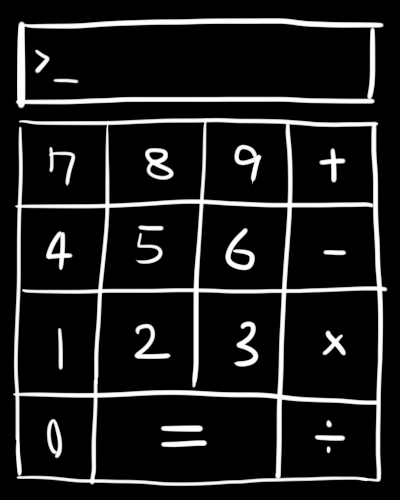 >_
7 8 9 +
4 5 6 -
1 2 3 ×
0 = ÷